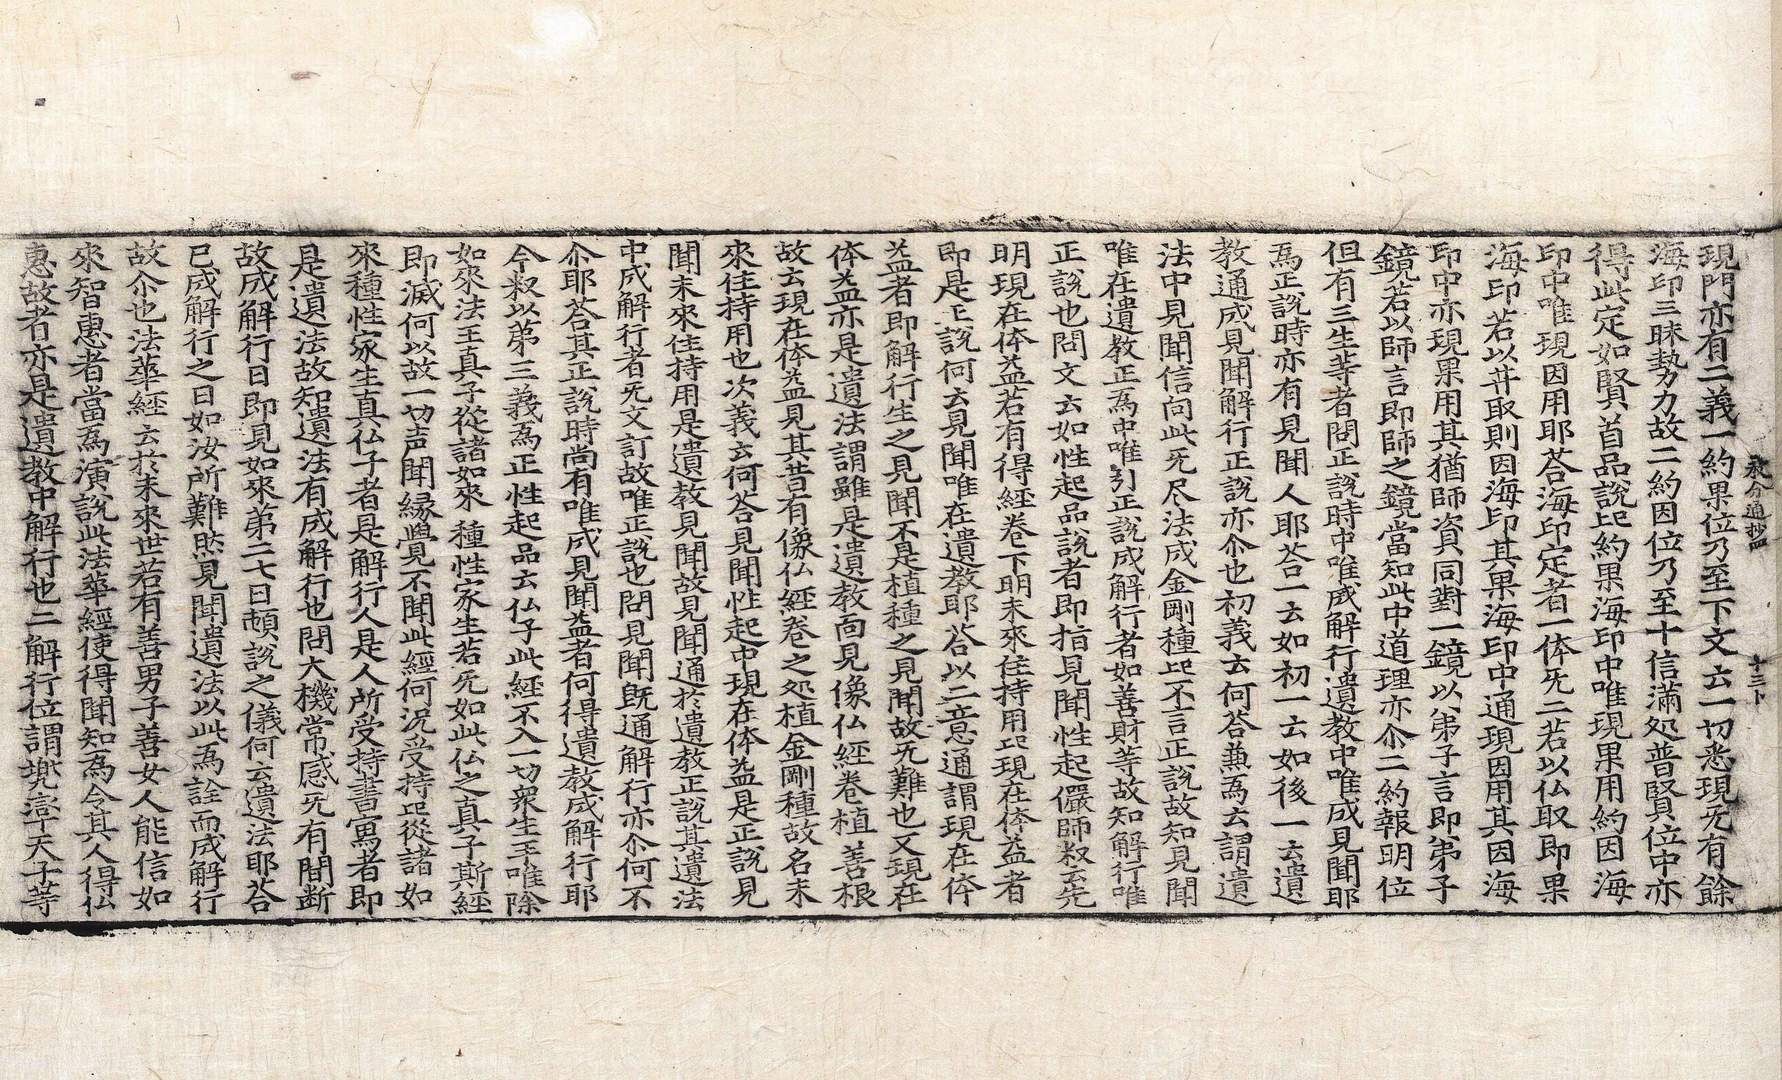 敎分通抄四　十三卜
現門亦有二義一約果位乃至下文云一切悉現无有餘
海印三昧勢力故二約因位乃至十信滿处普賢位中亦
得此定如賢首品說㠯約果海印中唯現果用約因海
印中唯現因用耶荅海印定者一体无二若以仏取即果
海印若以井取則因海印其果海印中通現因用其因海
印中亦現果用其猶師資同對一鏡以弟子言即弟子
鏡若以師言即師之鏡當知此中道理亦尒二約報明位
但有三生等者問正說時中唯成解行遺教中唯成見聞耶
爲正說時亦有見聞人耶荅一云如初一云如後一云遺
教通成見聞解行正說亦尒也初義云何荅䓍爲云謂遺
法中見聞信向此无尽法成金剛種㠯不言正說故知見聞
唯在遺教正爲中唯引正說成解行者如善財等故知解行唯
正說也問文云如性起品說者即指見聞性起儼師叔云先
明現在体益若有得經卷下明未來住持用㠯現在体益者
即是正說何云見聞唯在遺教耶荅以二意通謂現在体
益者即解行生之見聞不是植種之見聞故无難也又現在
体益亦是遺法謂雖是遺教而見像仏經卷植善根
故云現在体益見其昔有像仏經卷之処植金剛種故名未
來住持用也次義云何荅見聞性起中現在体益是正說見
聞未來住持用是遺教見聞故見聞通於遺教正說其遺法
中成解行者无文訂故唯正說也問見聞旣通解行亦尒何不
尒耶荅其正說時尚有唯成見聞益者何得遺教成解行耶
今叔以第三義爲正性起品云仏子此經不入一切衆生手唯除
如來法王真子從諸如來種性家生若无如此仏之真子斯經
即滅何以故一切声聞縁覺不聞此經何況受持㠯從諸如
來種性家生真仏子者是解行人是人所受持書寫者即
是遺法故知遺法有成解行也問大機常感无有間断
故成解行日即見如來第二七日頓說之儀何云遺法耶荅
已成解行之日如汝所難然見聞遺法以此爲詮而成解行
故尒也法華經云於未來世若有善男子善女人能信如
來智惠者當爲演說此法華經使得聞知爲令其人得仏
惠故者亦是遺教中解行也二解行位謂兠率天子等